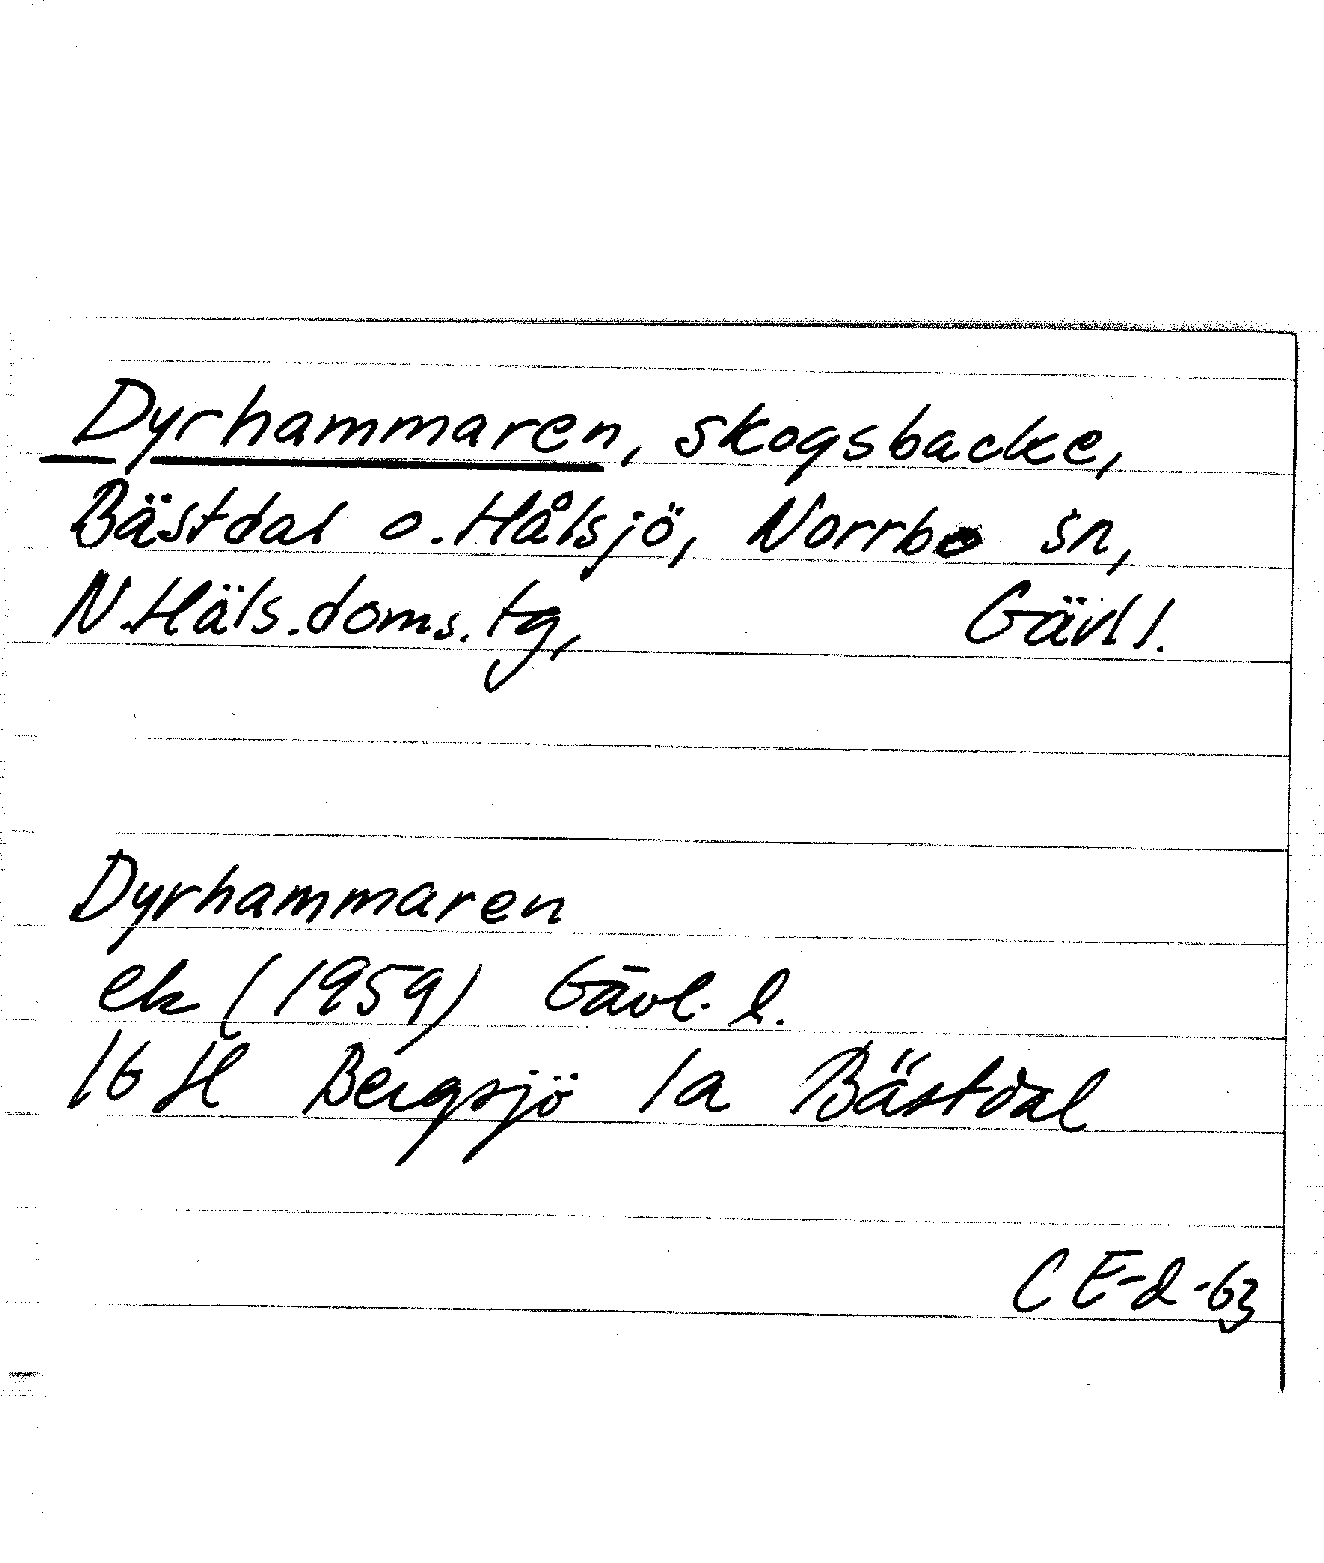 Dyrhammaren, skogsbacke,
Bästdal o. Hålsjö, Norrbo sn,
N.Häls.doms.tg, Gävl l.
Dyrhammaren
ek (1959) Gävl. l.
16 H Bergsjö 1a Bästdal
CE-d-63